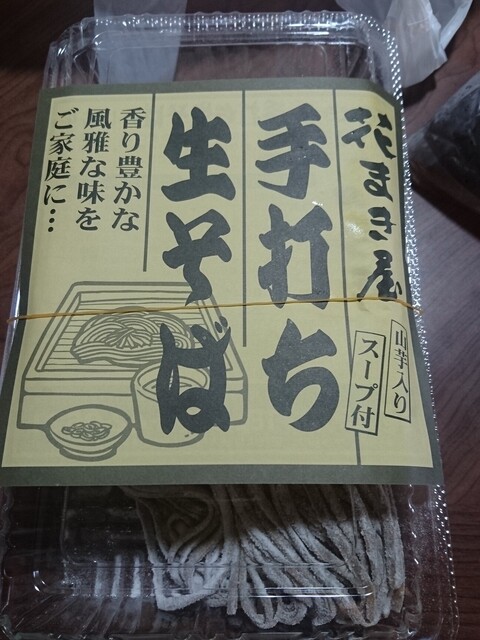 花まき屋
山芋入り
スープ付
手打ち
生そば
香り豊かな
風雅な味を
ご家庭に…